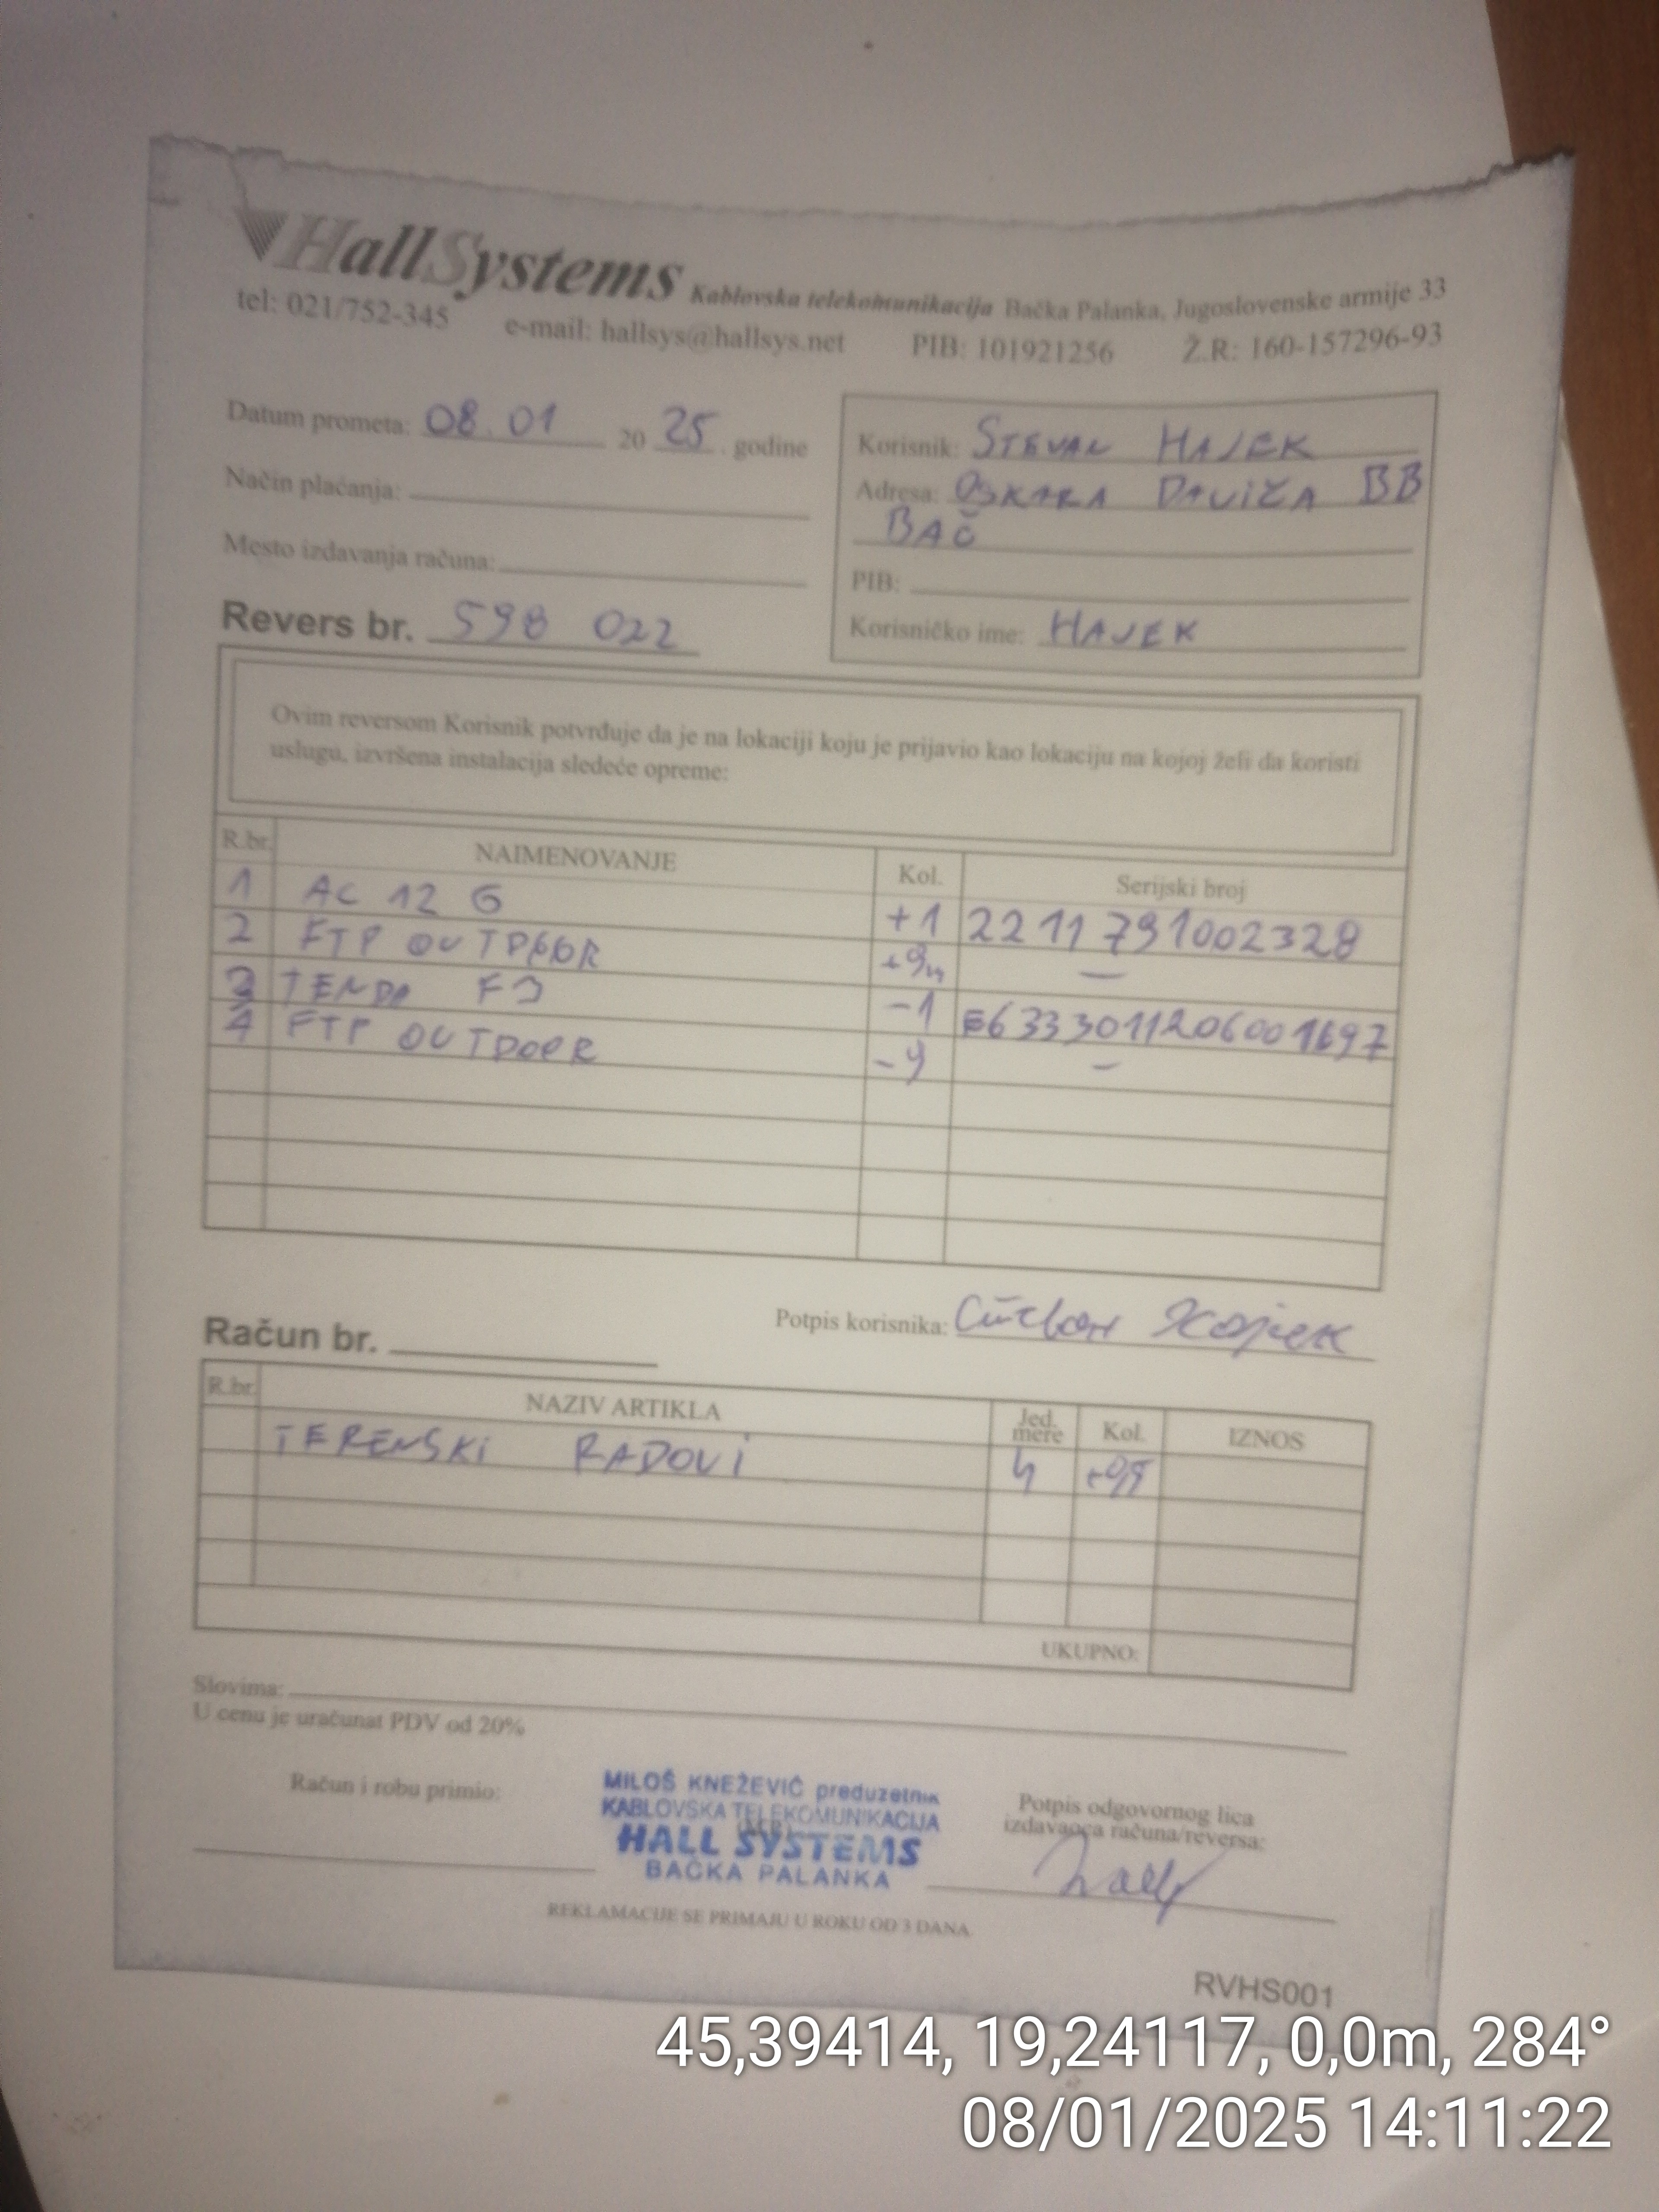 HallSystems Kablovska telekomunikacija Bačka Palanka, Jugoslovenske armije 33
tel: 021/752-345 e-mail: hallsys@hallsys.net PIB: 101921256 Ž.R: 160-157296-93
Datum prometa: 08.01 2025. godine
Način plaćanja:
Mesto izdavanja računa:
Revers br. 598 022
Korisnik: STEVAN HAJEK
Adresa: OSKARA DAVIČA BB
BAČ
PIB:
Korisničko ime: HAJEK
Ovim reversom Korisnik potvrđuje da je na lokaciji koju je prijavio kao lokaciju na kojoj želi da koristi
uslugu, izvršena instalacija sledeće opreme:
R.br. NAIMENOVANJE Kol. Serijski broj
1 AC 12 G +1 2211791002328
2 FTP OUTDOOR +9m —
3 TENDA F3 -1 E6333011206001697
4 FTP OUTDOOR -9 —
Potpis korisnika: Стеван Хајек
Račun br.
R.br. NAZIV ARTIKLA Jed. mere Kol. IZNOS
TERENSKI RADOVI h
UKUPNO:
Slovima:
U cenu je uračunat PDV od 20%
Račun i robu primio:
MILOŠ KNEŽEVIĆ preduzetnik
KABLOVSKA TELEKOMUNIKACIJA
HALL SYSTEMS
BAČKA PALANKA
Potpis odgovornog lica
izdavaoca računa/reversa:
REKLAMACIJE SE PRIMAJU U ROKU OD 3 DANA
RVHS001
45,39414, 19,24117, 0,0m, 284°
08/01/2025 14:11:22